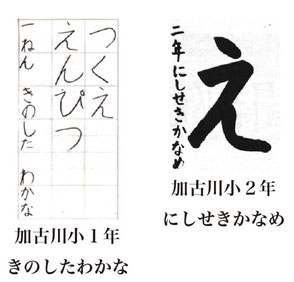 つくえ
えんぴつ
一ねん きのした わかな
加古川小1年
きのしたわかな
え
二年にしせきかなめ
加古川小2年
にしせきかなめ